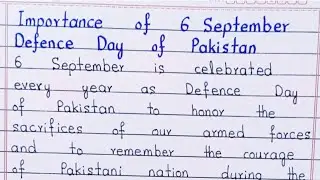 Importance of 6 September
Defence Day of Pakistan
6 September is celebrated
every year as Defence Day
of Pakistan to honor the
sacrifices of our armed forces
and to remember the courage
of Pakistani nation during the